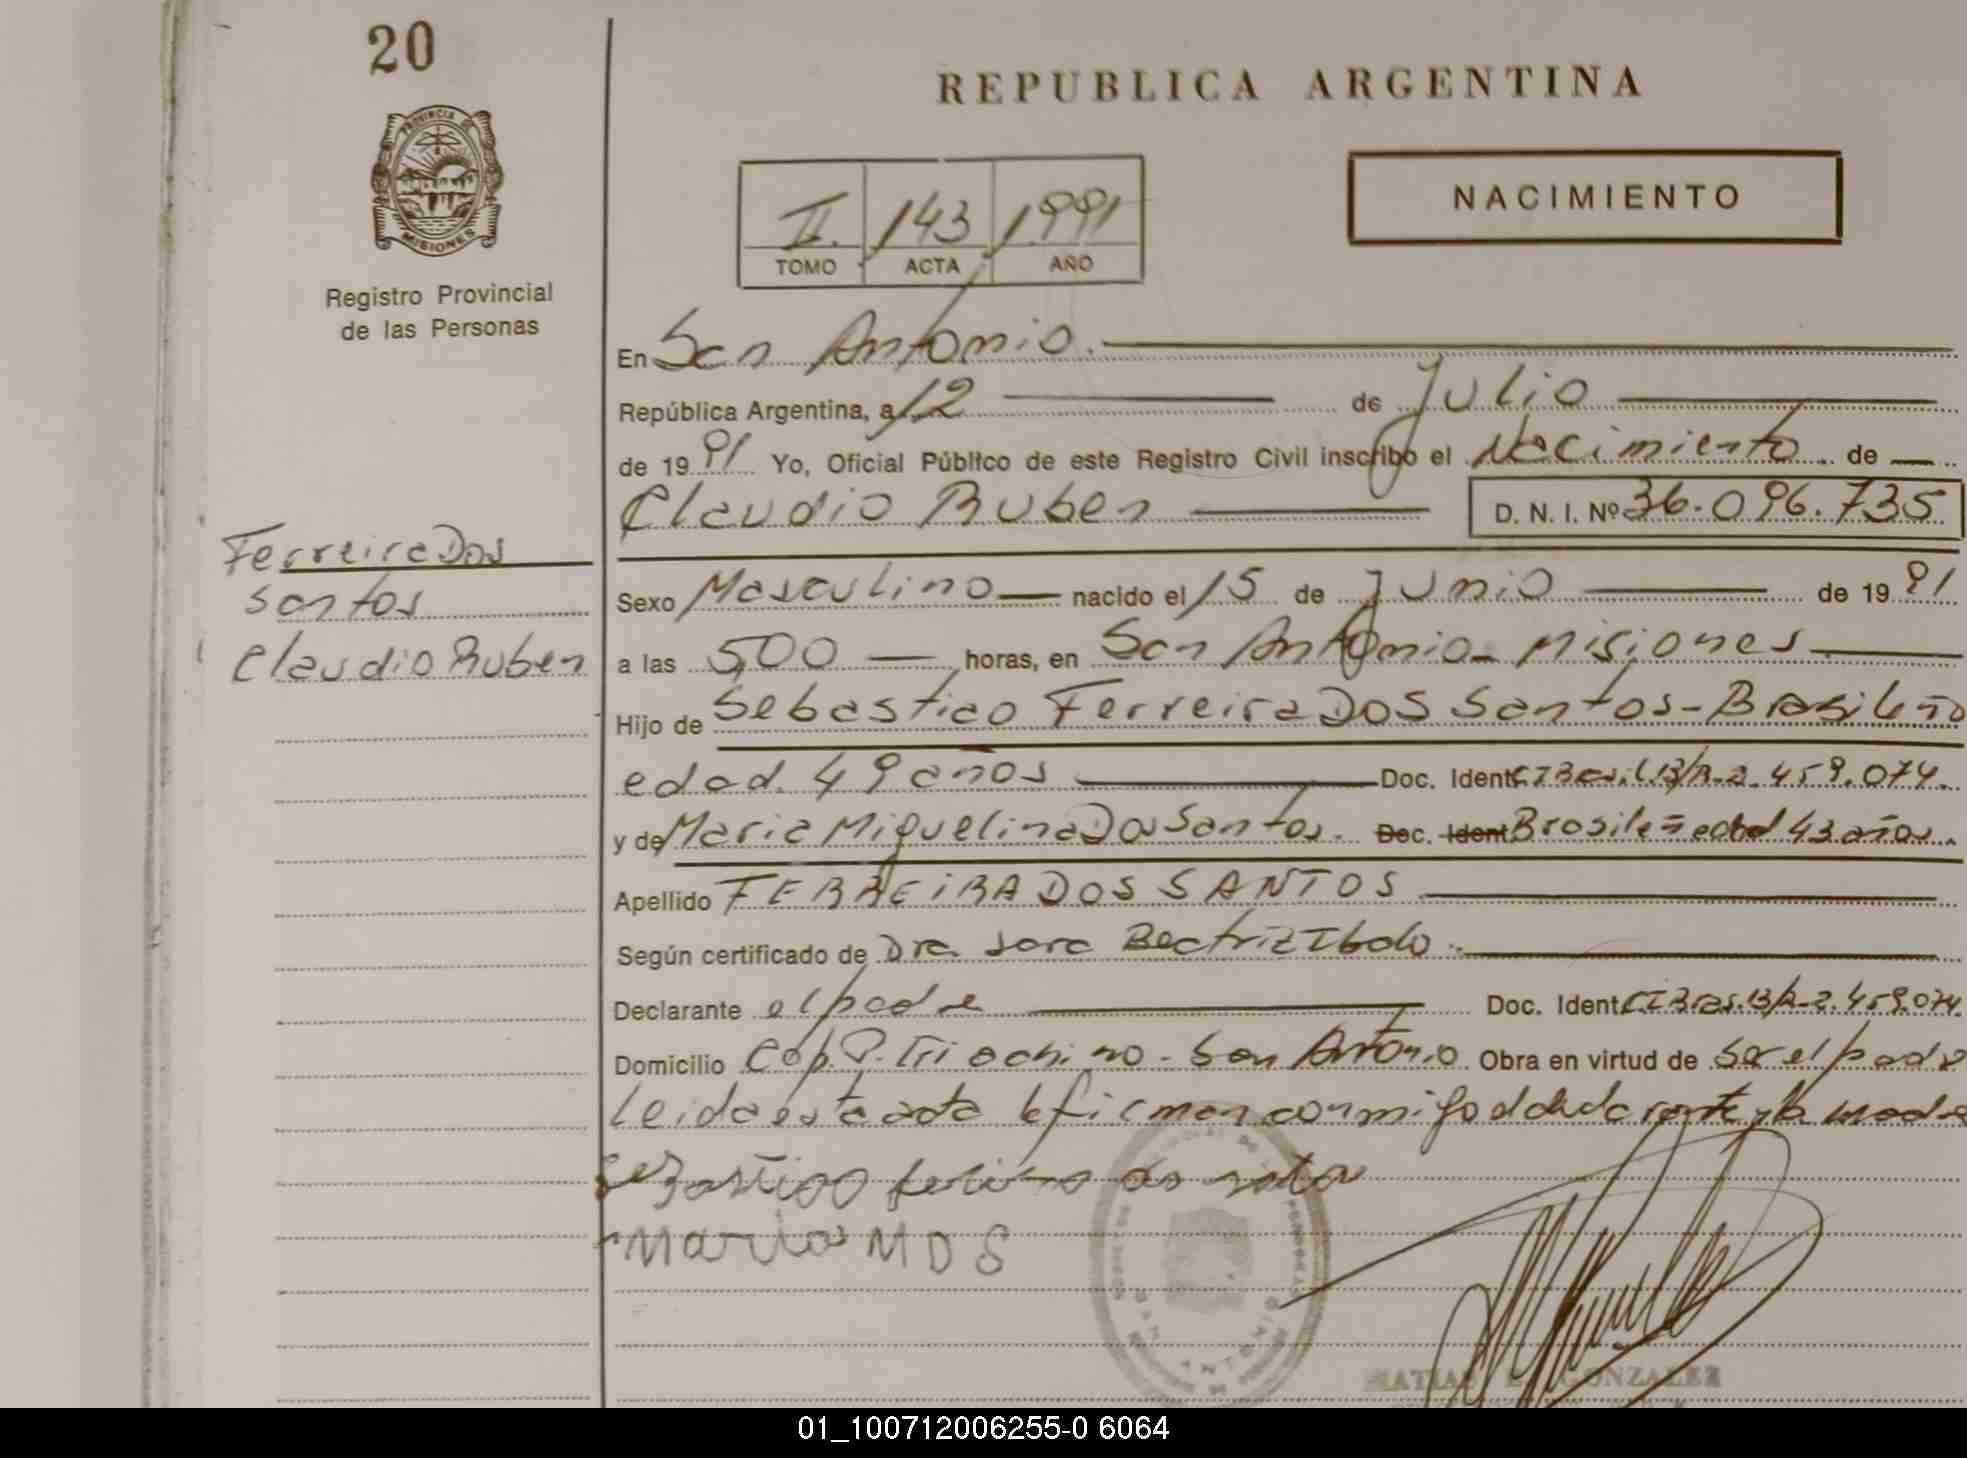 20
REPUBLICA ARGENTINA
PROVINCIA DE
MISIONES
NACIMIENTO
II. 143 1991
TOMO ACTA AÑO
Registro Provincial
de las Personas
En San Antonio.
República Argentina, a 12 de Julio
de 19 91 Yo, Oficial Público de este Registro Civil inscribo el Nacimiento. de
Claudio Ruben D. N. I. Nº 36.096.735
Ferreira Dos
Santos
Claudio Ruben
Sexo Masculino nacido el 15 de Junio de 19 91
a las 5,00 horas, en San Antonio - Misiones
Hijo de Sebastiao Ferreira Dos Santos - Brasileño
edad 49 años Doc. Ident. C.I.Bras. 13/R-2.459.074.
y de Maria Miguelina Dos Santos. Doc. Ident Brasileña edad 43 años.
Apellido FERREIRA DOS SANTOS
Según certificado de Dra Sara Beatriz
Declarante el padre Doc. Ident. C.I Bras. 13/R-2.459.074.
Domicilio San Antonio Obra en virtud de ser el padre
Leida esta acta la firman conmigo el declarante y la madre
Maria M D S
SAN ANTONIO
MATIAS GONZALEZ
01_100712006255-0 6064